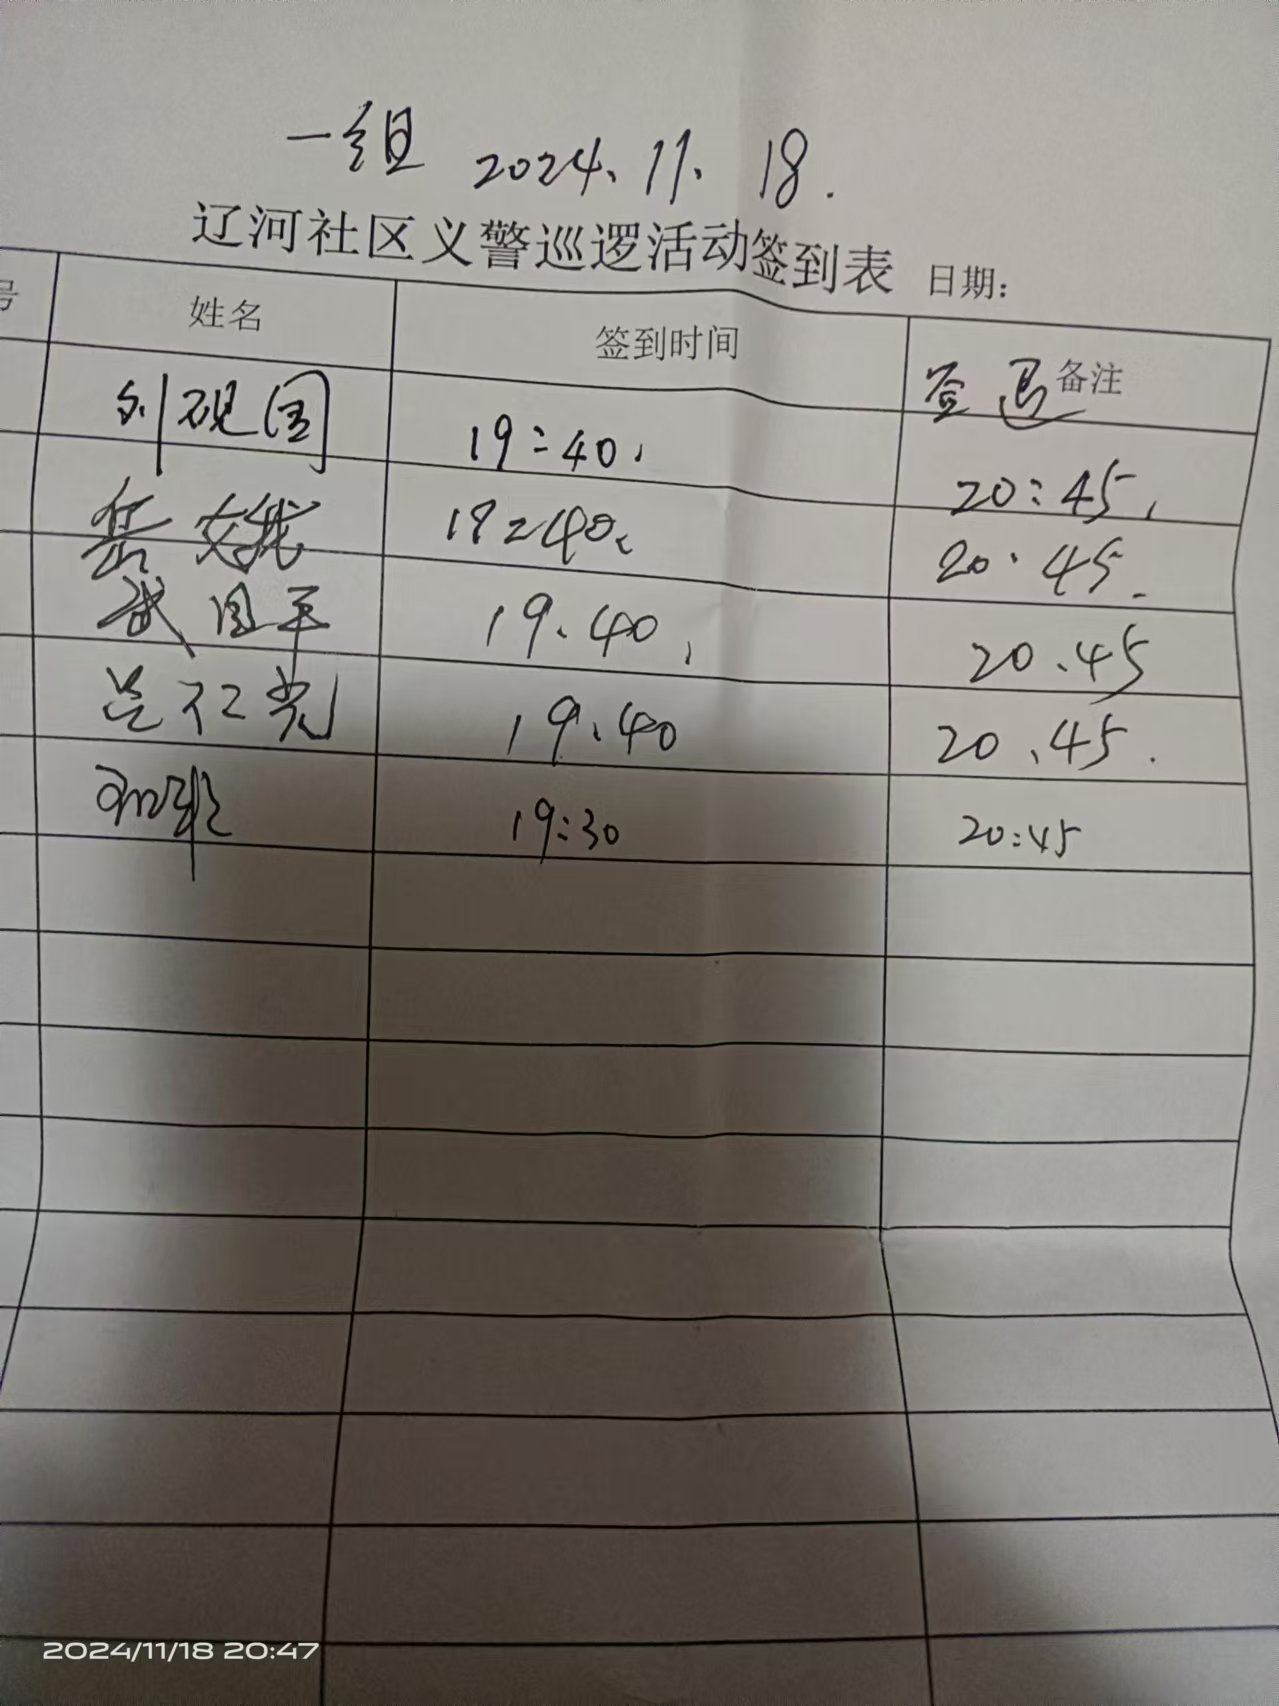 一组 2024.11.18.
辽河社区义警巡逻活动签到表 日期:
号 姓名 签到时间 签退 备注
刘砚国 19:40. 20:45.
岳 19:40. 20.45.
武国平 19.40. 20.45
兰仁党 19.40 20.45.
19:30 20:45
2024/11/18 20:47